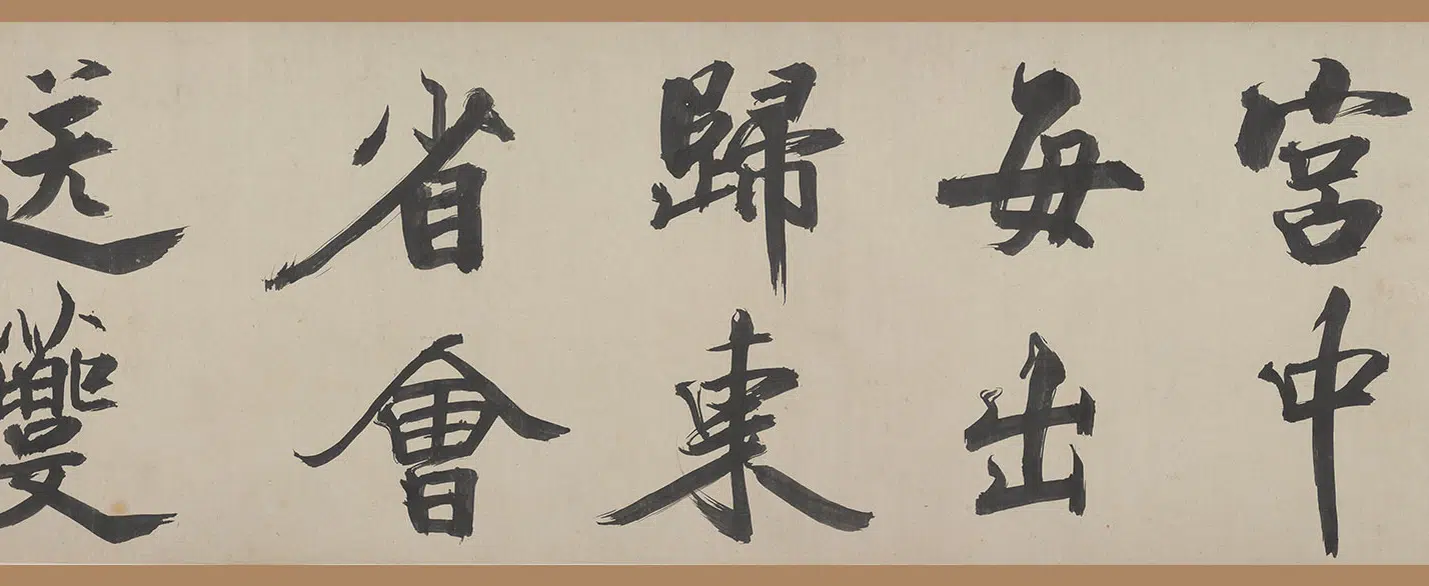 宮中
每出
歸東
省會
送夔